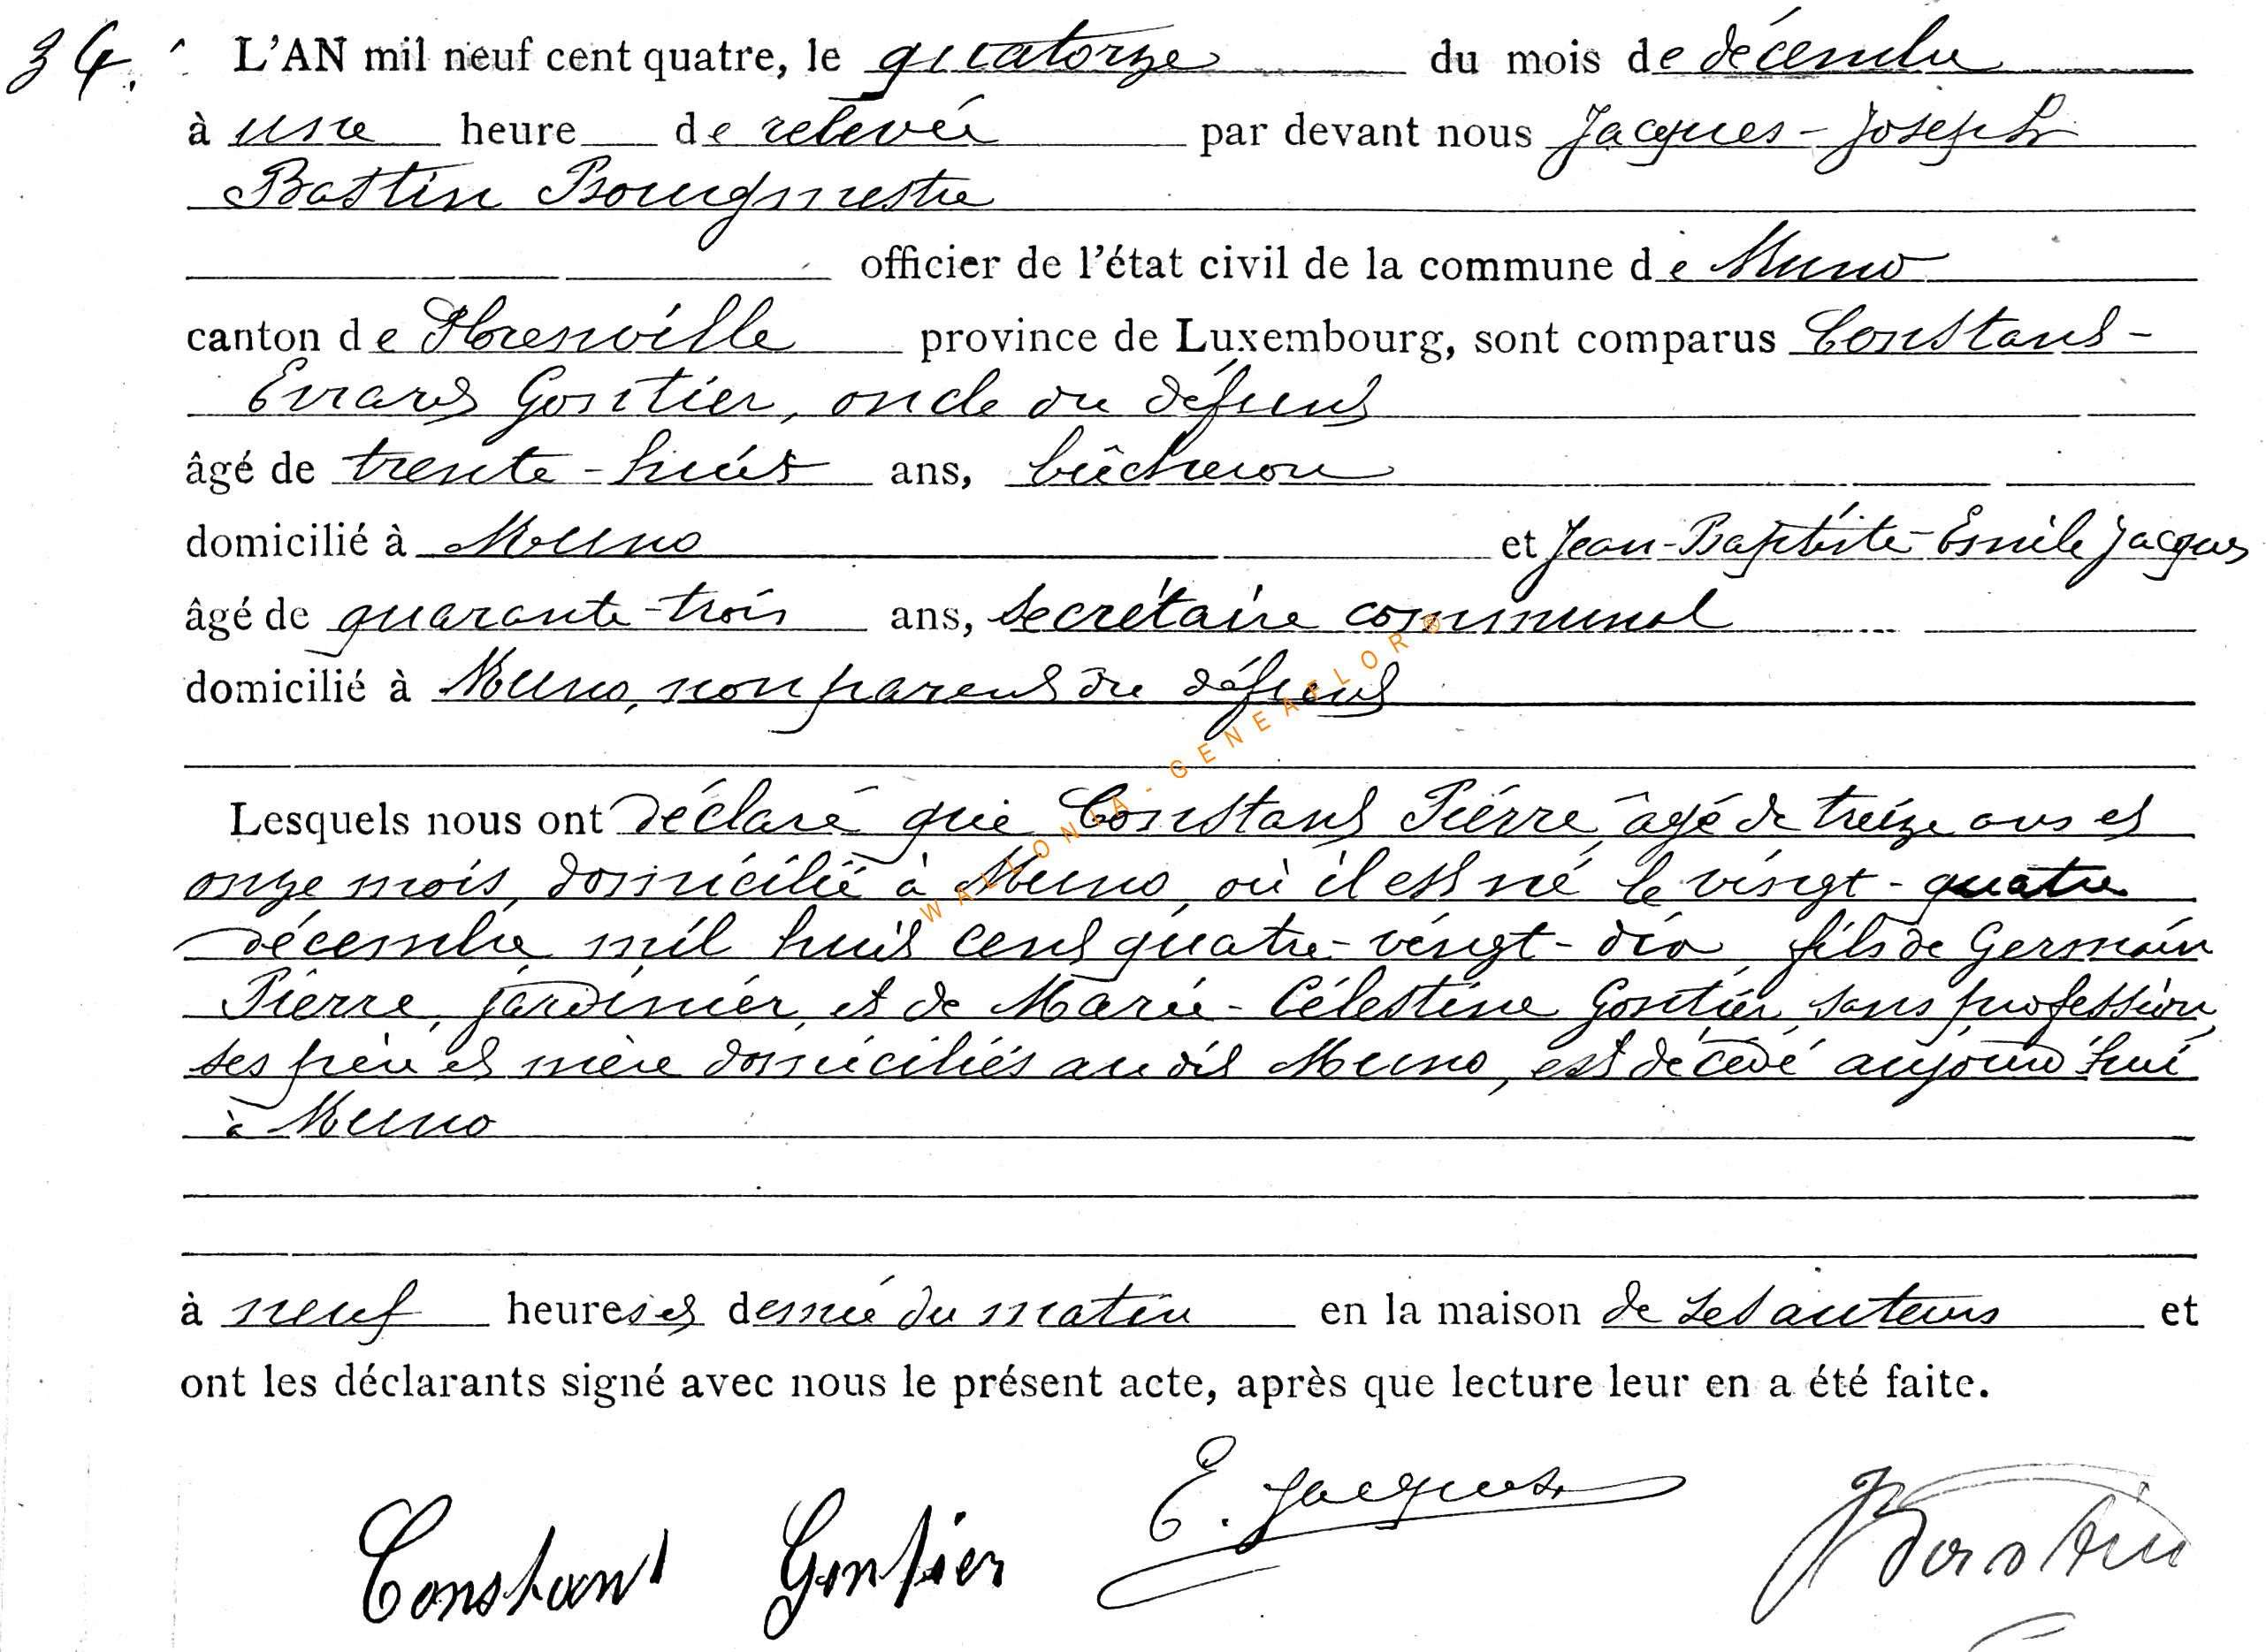 34. L'AN mil neuf cent quatre, le quatorze du mois de décembre
à une heure de relevée par devant nous Jacques-Joseph
Bastin Bourgmestre
officier de l'état civil de la commune de Muno
canton de Florenville province de Luxembourg, sont comparus Constant-
Evrard Gontier, oncle du défunt
âgé de trente-huit ans, bûcheron
domicilié à Muno et Jean-Baptiste-Emile Jacques
âgé de quarante-trois ans, secrétaire communal
domicilié à Muno, non parent du défunt
Lesquels nous ont déclaré que Constant Pierre, âgé de treize ans et
onze mois, domicilié à Muno, où il est né le vingt-quatre
décembre mil huit cent quatre-vingt-dix, fils de Germain
Pierre, jardinier, et de Marie-Célestine Gontier, sans profession,
ses père et mère domiciliés au dit Muno, est décédé aujourd'hui
à Muno
à neuf heures et demie du matin en la maison de ses auteurs et
ont les déclarants signé avec nous le présent acte, après que lecture leur en a été faite.
Constant Gontier E. Jacques JBastin
WALLONIA-GENEAFLOR®